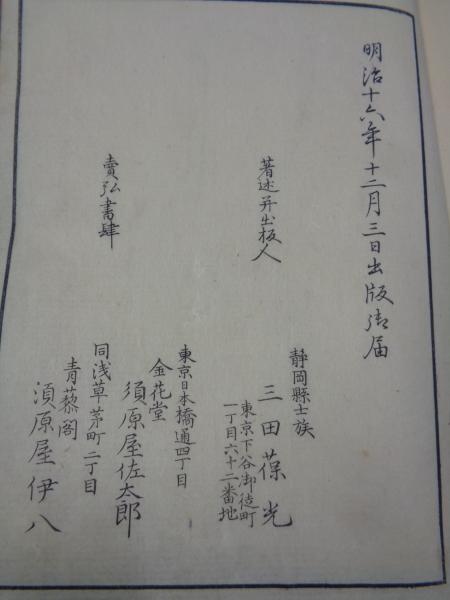 明治十六年十二月三日出版御届
著述并出板人
静岡縣士族
三田葆光
東京下谷御徒町
一丁目六十二番地
賣弘書肆
東京日本橋通四丁目
金花堂
須原屋佐太郎
同浅草茅町二丁目
青藜閣
須原屋伊八